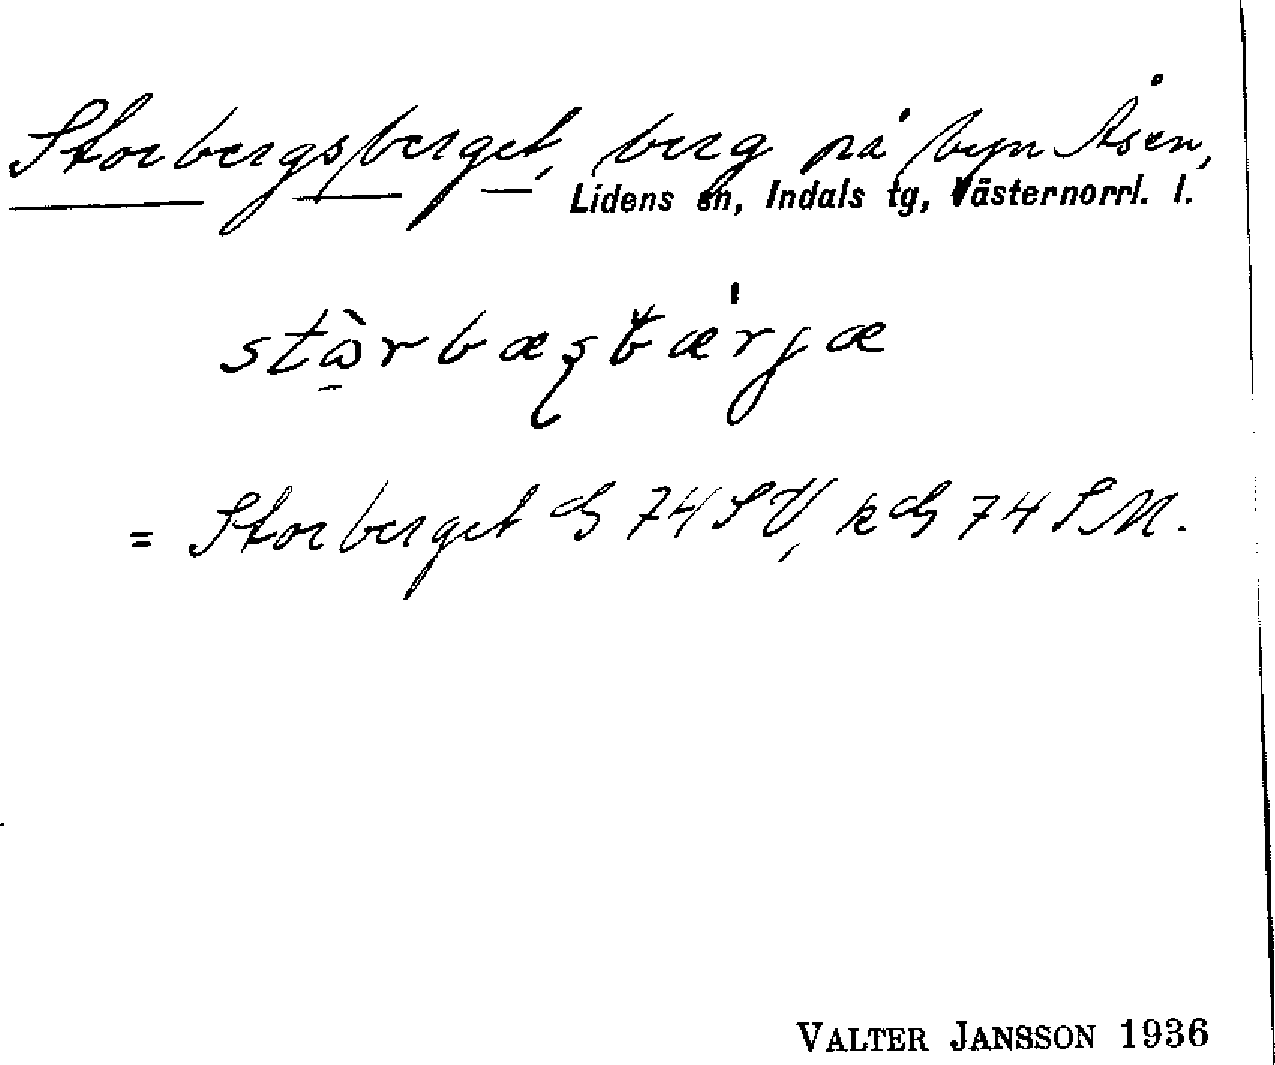 Storbergsberget, berg på byn Åsen,
Lidens sn, Indals tg, Västernorrl. l.
= Storberget G 74 SV, k G 74 SM.
VALTER JANSSON 1936